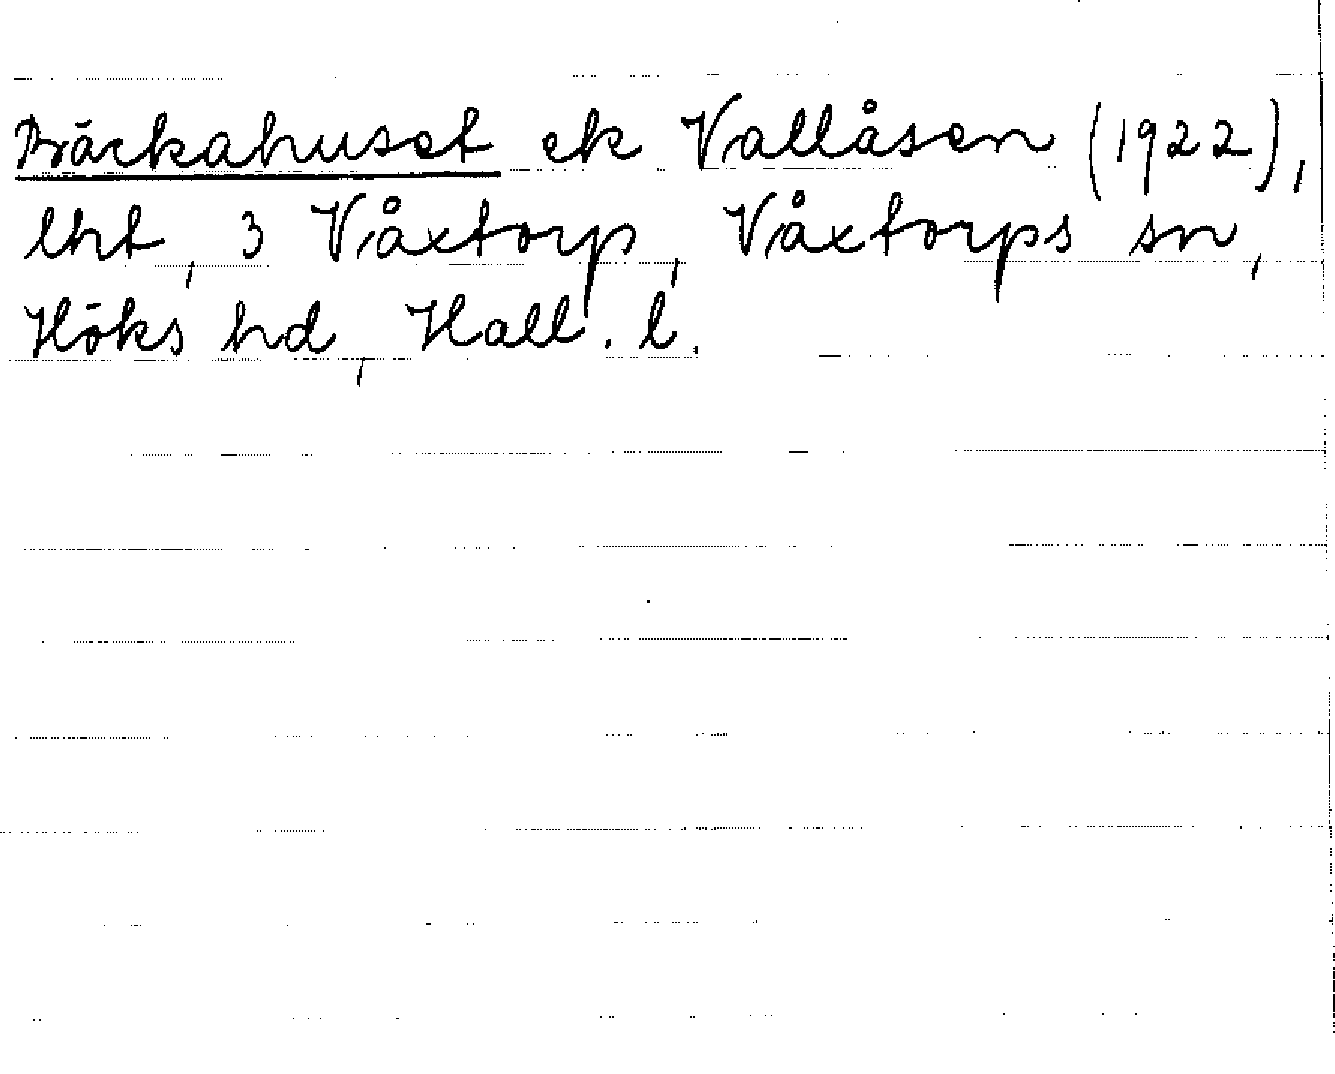 Bräckahuset ek Vallåsen (1922),
lht, 3 Våxtorp, Våxtorps sn,
Höks hd, Hall. l.